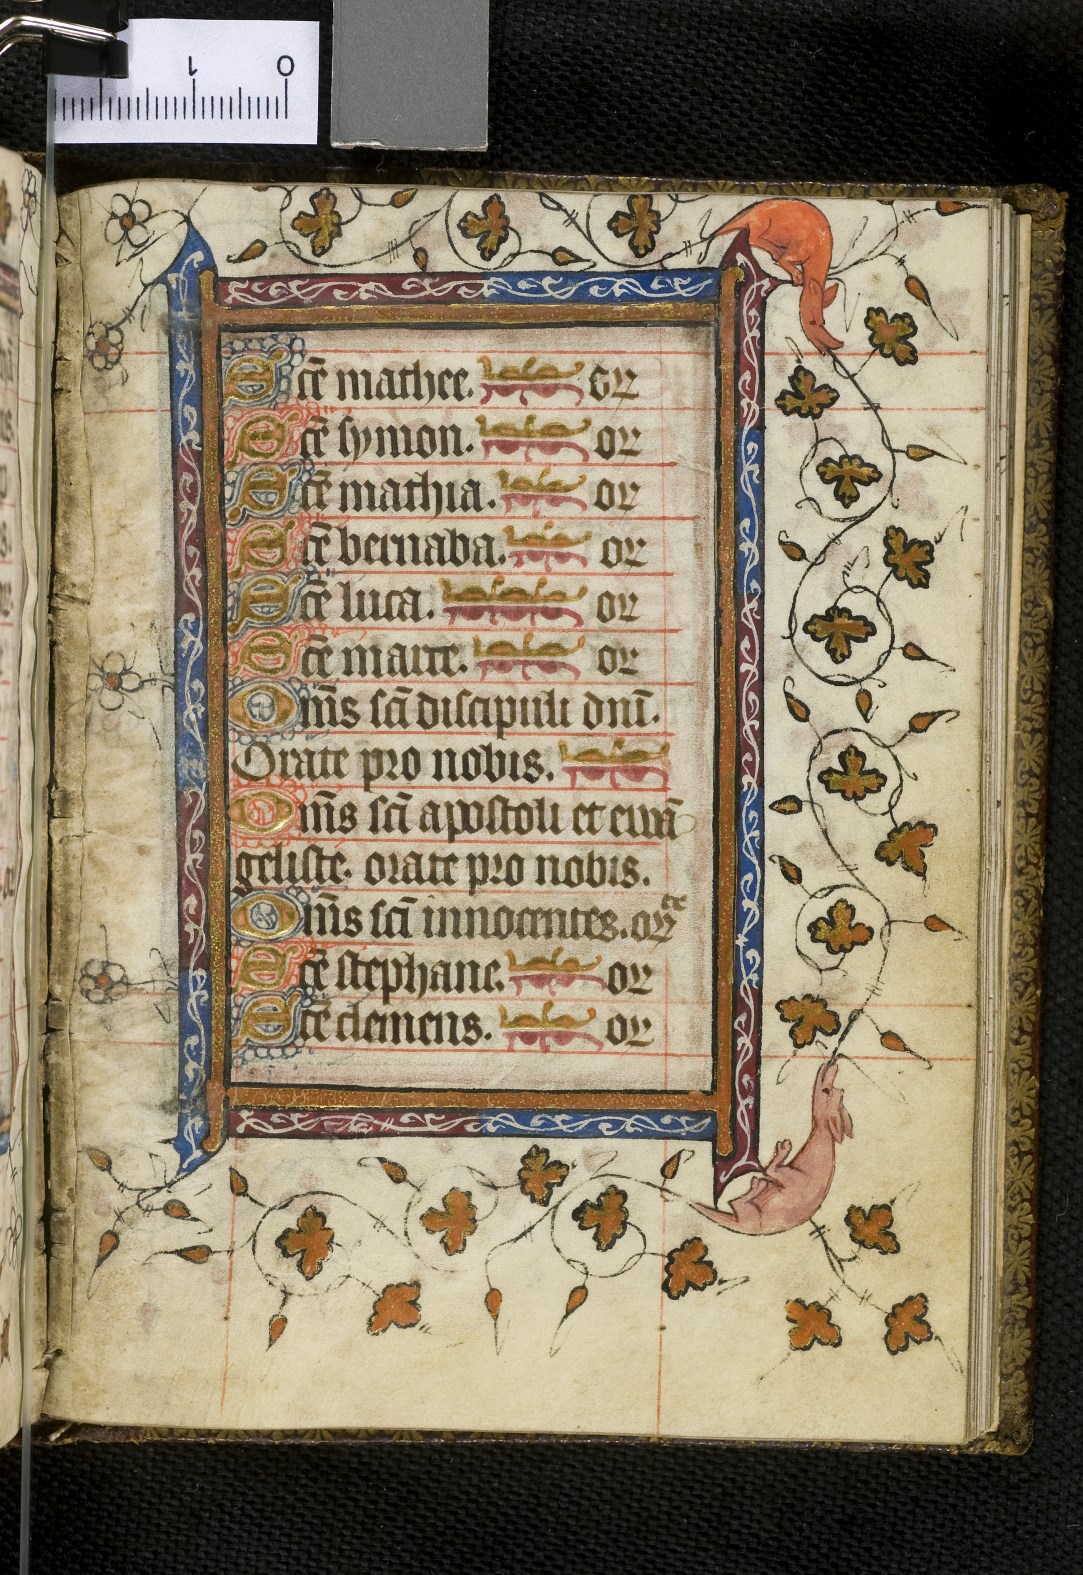 1 0
Scē mathee. or
Scē symon. or
Scē mathia. or
Scē bernaba. or
Scē luca. or
Scē marce. or
Om̄s scī discipuli dnī.
Orate pro nobis.
Om̄s scī apostoli et euuā
geliste. orate pro nobis.
Om̄s scī innocentes. or
Scē stephane. or
Scē clemens. or